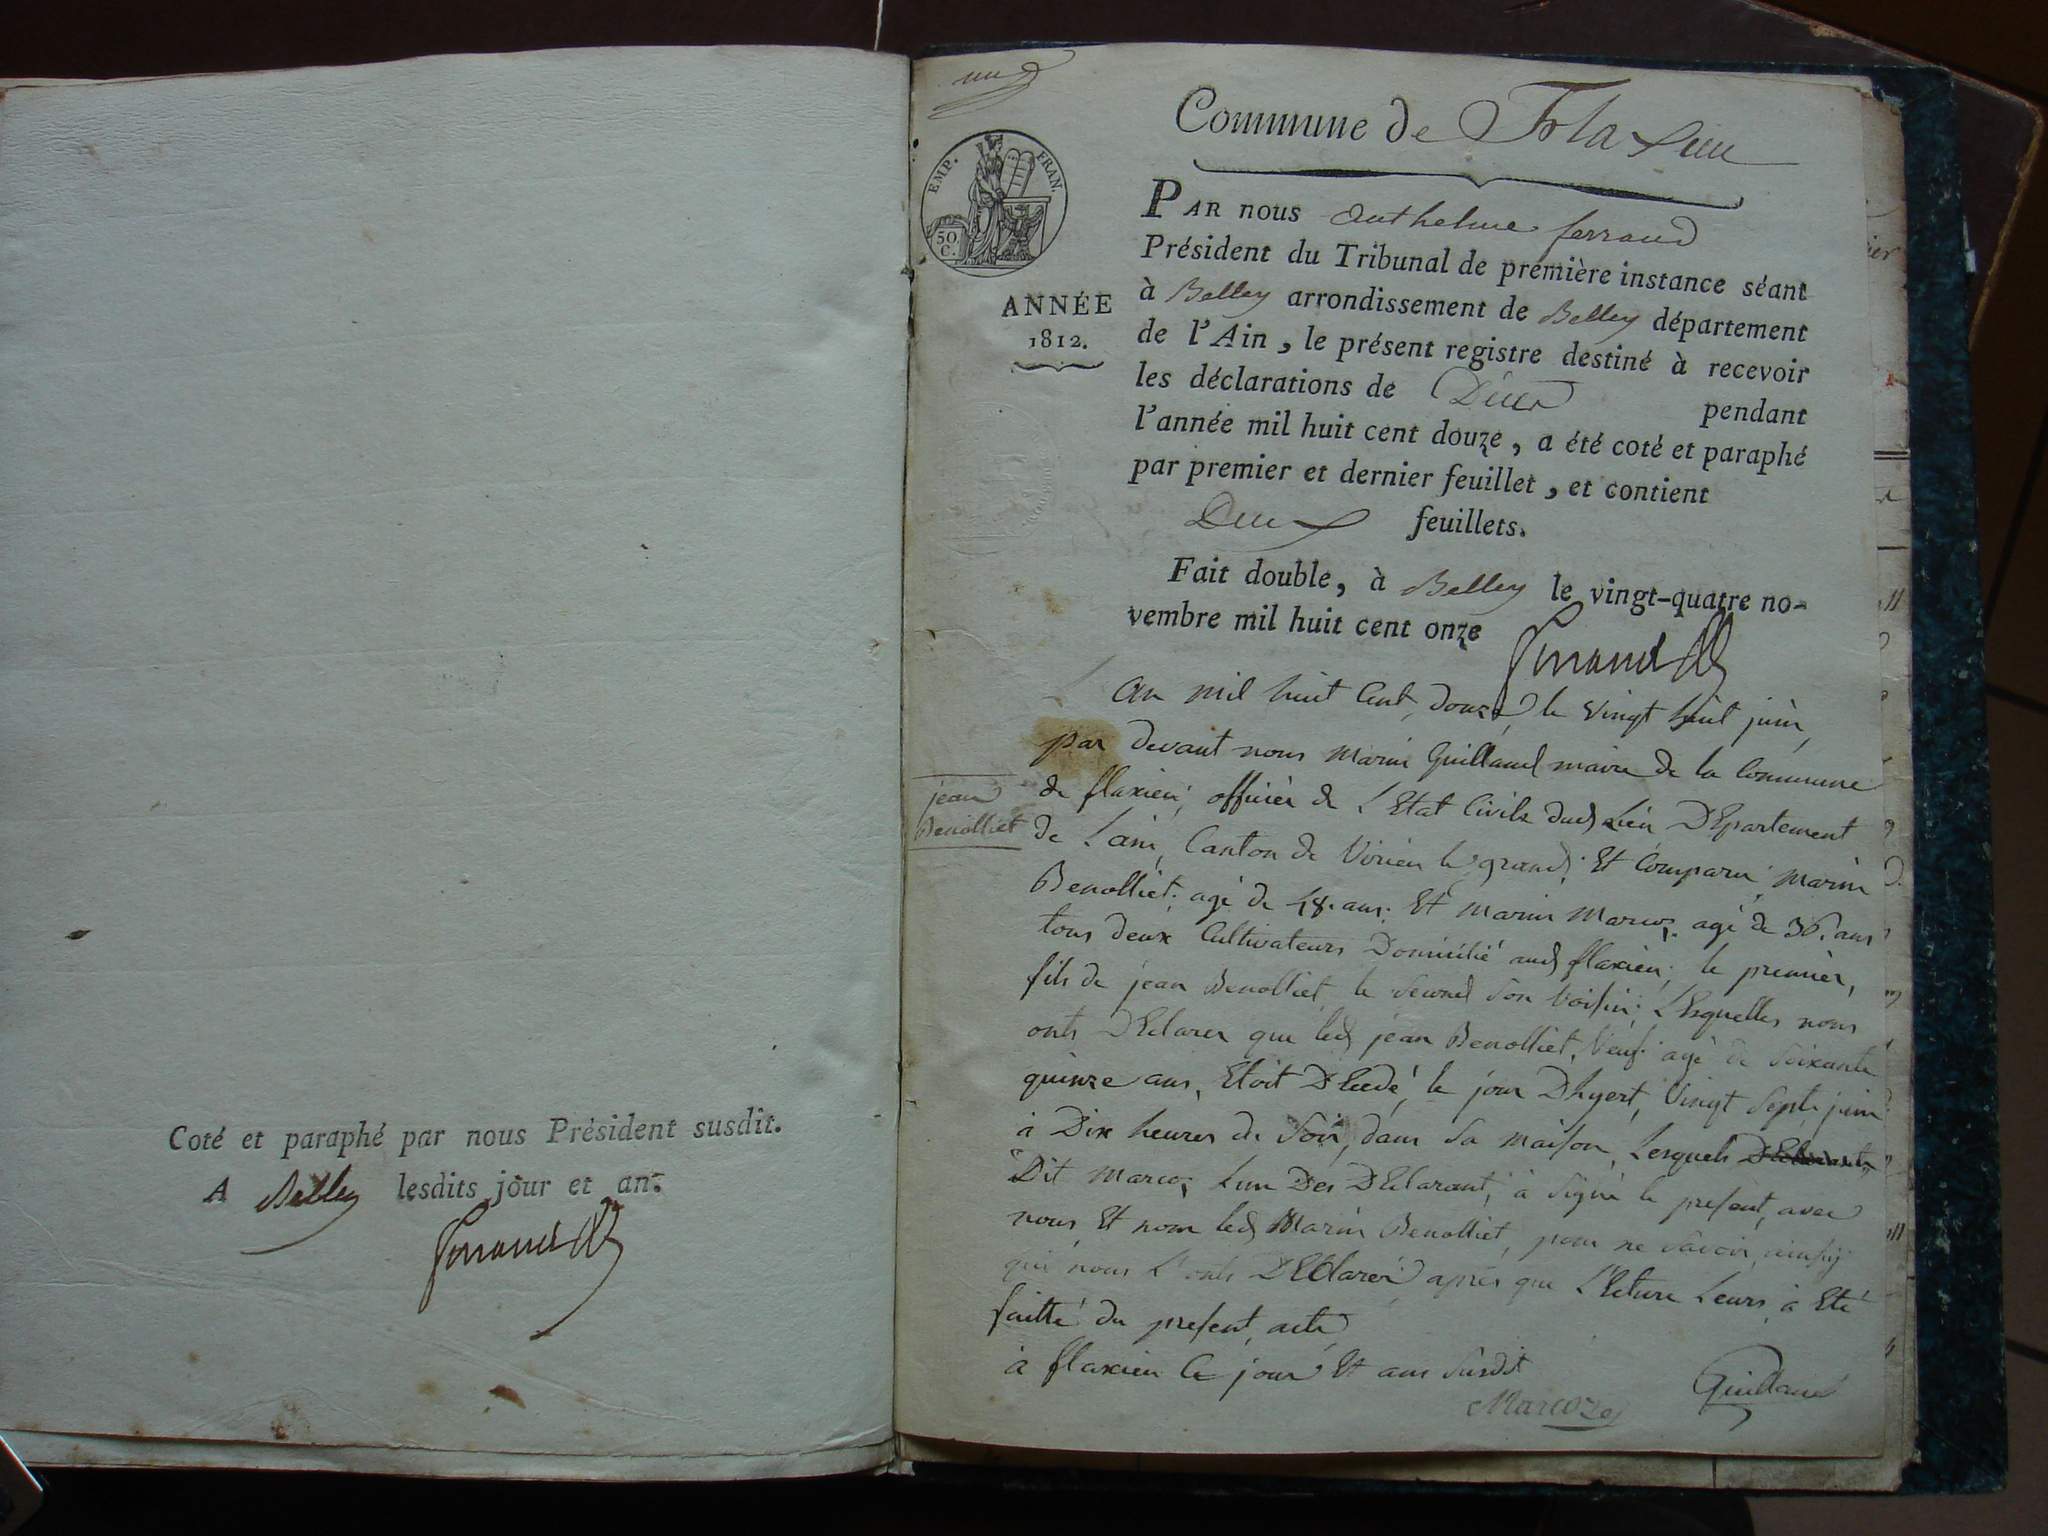 Coté et paraphé par nous Président susdit.
A Belley lesdits jour et an.
Ferrand
un
EMP. FRAN.
50 C.
ANNÉE
1812.
Commune de Flaxieu
PAR nous Anthelme ferrand
Président du Tribunal de première instance séant
à Belley arrondissement de Belley département
de l'Ain, le présent registre destiné à recevoir
les déclarations de Décès pendant
l'année mil huit cent douze, a été coté et paraphé
par premier et dernier feuillet, et contient
Deux feuillets.
Fait double, à Belley le vingt-quatre no-
vembre mil huit cent onze
Ferrand
jean
Benolliet
An mil huit Cent douze le vingt huit juin,
par devant nous Marin Guilland maire de la Commune
de flaxieu, officier de L'Etat Civile dud Lieu DEpartement
de Lain, Canton de Virieu le grand, Et Comparu Marin
Benolliet agé de 48. ans. Et Marin Marcoz. agé de 36. ans
tous deux Cultivateurs Domicilié aud flaxieu, le premier,
fils de jean Benolliet le Second Son Voisin, LEsquelles nous
onts DEclarer que led jean Benolliet, Veuf agé de Soixante
quinze ans, Etoit DEcedé, le jour Dhyert, Vingt Sept juin
à Dix heures du Soir, dans Sa Maison, Lesquels
Dit Marcoz Lun Des DEclarant, à Signé le present, avec
nous Et nom led Marin Benolliet, pour ne Savoir, ainsÿ
qui nous L'onts DEClarer après que L'Ecture Leurs à Eté
faitte du present acte
à flaxieu Ce jour Et ans Susdit
Marcoz Guilland